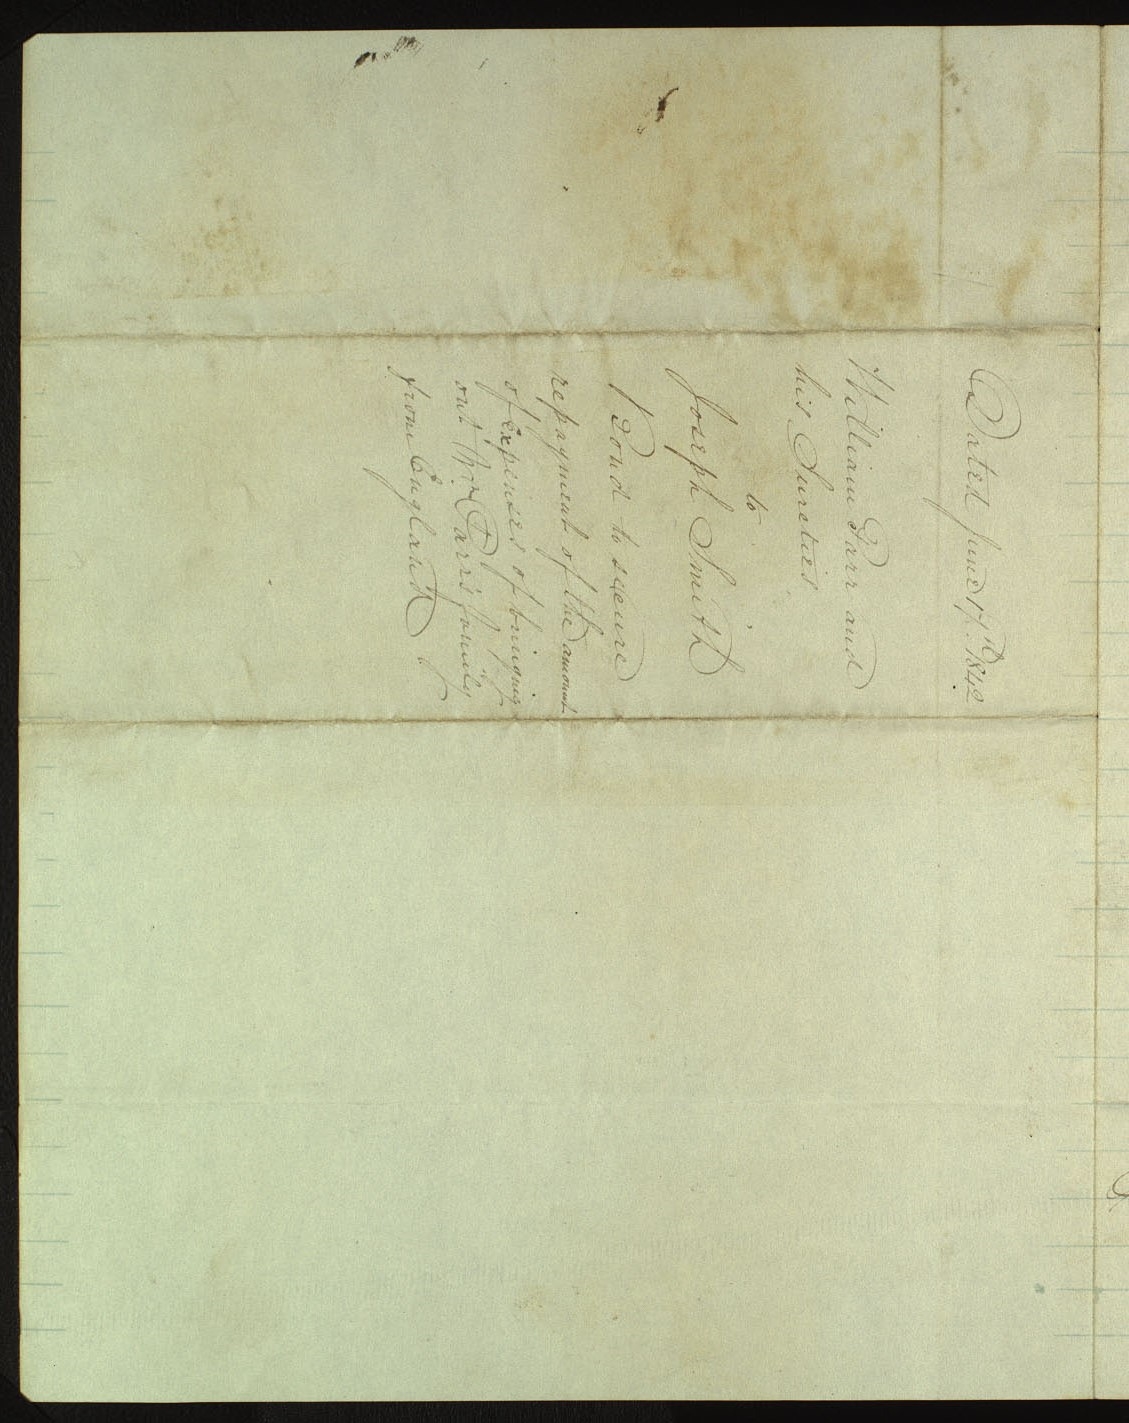 Dated June 17th. 1842
William Parr and
his Sureties
to
Joseph Smith
Bond to secure
repayment of the amount
of expenses of bringing
out Mr. Parr's family
from England